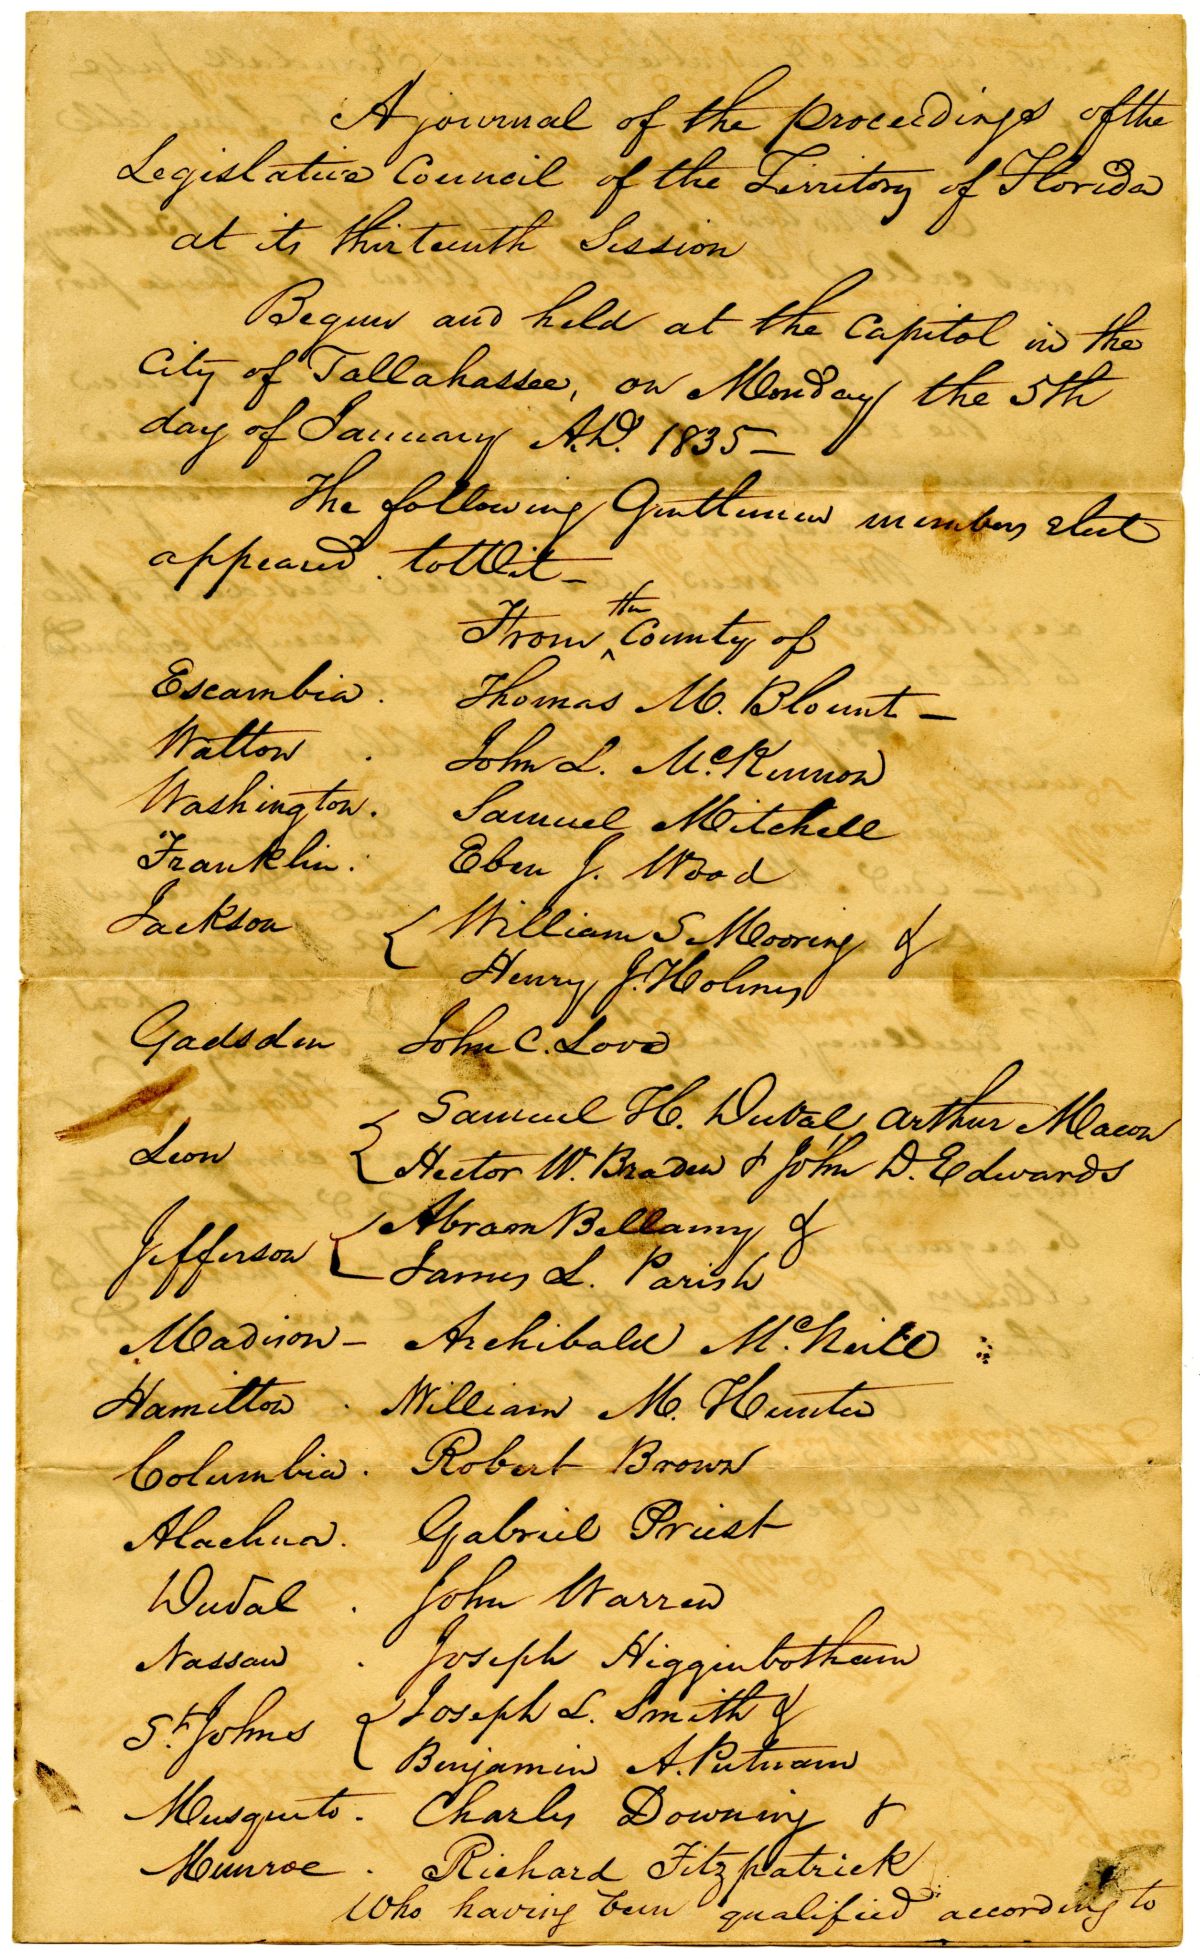 A journal of the proceedings of the
Legislative Council of the Territory of Florida
at its thirteenth Session
Begun and held at the Capitol in the
City of Tallahassee, on Monday the 5th
day of January A.D. 1835 —
The following Gentlemen members elect
appeared. to Wit —
the
From ^ County of
Escambia . Thomas M. Blount —
Walton . John L. McKinnon
Washington. Samuel Mitchell
Franklin. Eben J. Wood
Jackson { William S Mooring &
Henry J. Holmes
Gadsden John C. Love
Samuel H. Duval, Arthur Macon
Leon { Hector W. Braden & John D. Edwards
Jefferson { Abram Bellamy &
James L. Parish
Madison — Archibald McNeill
Hamilton . William M. Hunter
Columbia . Robert Brown
Alachua. Gabriel Priest
Duval . John Warren
Nassau . Joseph Higginbotham
St. Johns { Joseph L. Smith &
Benjamin A. Putnam
Musquito. Charles Downing &
Munroe . Richard Fitzpatrick
Who having been qualified according to